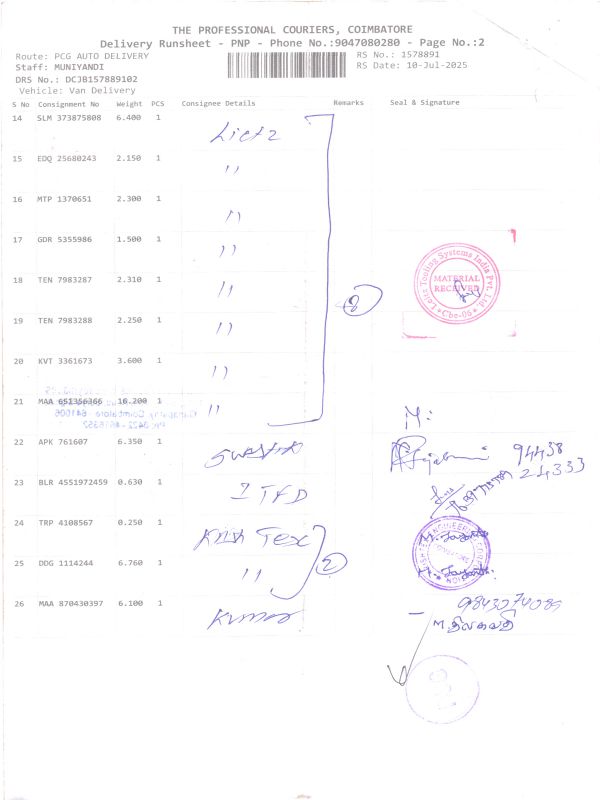 THE PROFESSIONAL COURIERS, COIMBATORE
Delivery Runsheet - PNP - Phone No.:9047080280 - Page No.:2
Route: PCG AUTO DELIVERY RS No.: 1578891
Staff: MUNIYANDI RS Date: 10-Jul-2025
DRS No.: DCJB157889102
Vehicle: Van Delivery
S No Consignment No Weight PCS Consignee Details Remarks Seal & Signature
14 SLM 373875808 6.400 1 Lietz
15 EDQ 25680243 2.150 1 "
16 MTP 1370651 2.300 1 "
17 GDR 5355986 1.500 1 "
18 TEN 7983287 2.310 1 "
Leitz Tooling Systems India Pvt. Ltd.
MATERIAL
RECEIVED
Cbe-06
8
19 TEN 7983288 2.250 1 "
20 KVT 3361673 3.600 1 "
21 MAA 652356366 10.200 1 "
22 APK 761607 6.350 1 94438
24333
23 BLR 4551972459 0.630 1
24 TRP 4108567 0.250 1 Krish Tex
2
25 DDG 1114244 6.760 1 "
26 MAA 870430397 6.100 1 Kumar